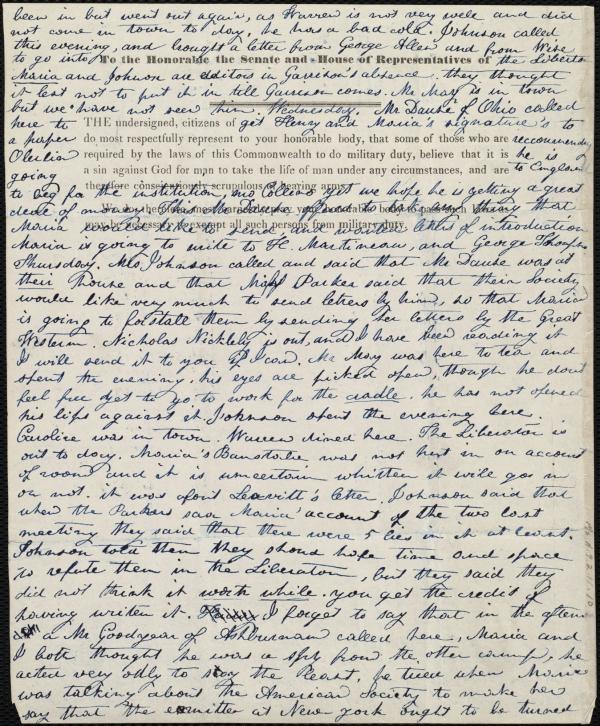 been in but went out again, as Warren is not very well and did
not come in town to day, he has a bad cold. Johnson called
this evening, and brought a letter from George Allen and from Wise
to go into the Liberator
To the Honorable the Senate and House of Representatives of
Maria and Johnson are editors in Garrison's absence. they thought
it best not to put it in till Garrison comes. Mr May is in town
but we have not seen him Wednesday. Mr Dawse of Ohio called
here to get Henry and Maria's signature's to
THE undersigned, citizens of
a paper recommending
do most respectfully represent to your honorable body, that some of those who are
Oberlin he is
required by the laws of this Commonwealth to do military duty, believe that it is
going to England
a sin against God for man to take the life of man under any circumstances, and are
therefore conscientiously scrupulous of bearing arms.
to beg for the institution, we hope he is getting a great
deal of money. This Mr Dawse offered to take any thing that
Maria would like to send and wanted letters of introduction
exempt all such persons from military duty.
Maria is going to write to H. Martineau, and George Thompson
Thursday. Mrs Johnson called and said that Mr Dawse was at
their house and that Mary Parker said that their Society
would like very much to send letters by him, so that Maria
is going to forstall them by sending her letters by the Great
Western. Nicholas Nickleby is out, and I have been reading it
I will send it to you if I can. Mr May was here to tea and
spent the evening, his eyes are picked open, though he dont
feel free yet to go to work for the cradle. he has not opened
his lips against it. Johnson spent the evening here.
Caroline was in town. Warren dined here. The Liberator is
out to day. Maria's was not put in on account
of room and it is uncertain whitten it will go in
or not. it was Leavitt's letter, Johnson said that
when the Parkers saw Maria's account of the two last
meeting they said that there were 5 lies in it at least.
Johnson told them they should have time and space
to refute them in the Liberator, but they said they
did not think it worth while. you get the credit of
having written it. I forget to say that in the after
a Mr Goodyear of Ashburnham called here, Maria and
I both thought he was a spy from the other camp, he
acted very odly to say the least, he tried when Maria
was talking about the American Society to make her
say that the comitter at New york ought to be turned